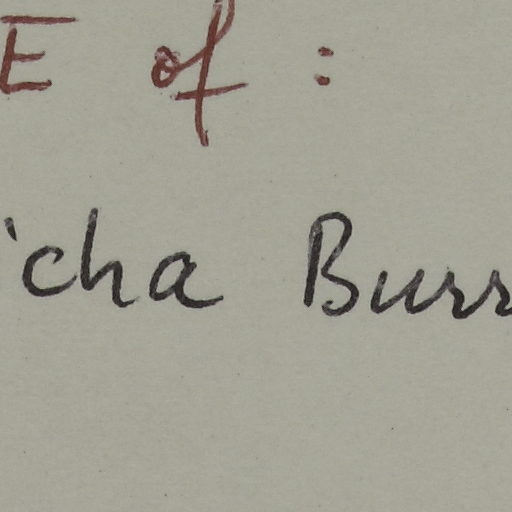 E of :
icha Burr